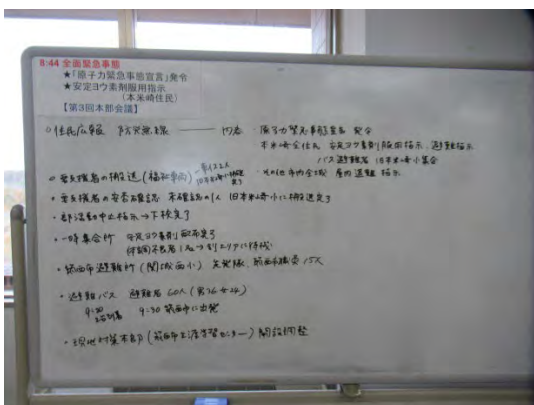 8:44 全面緊急事態
★「原子力緊急事態宣言」発令
★安定ヨウ素剤服用指示
(本米崎住民)
【第3回本部会議】
○住民広報 防災無線 内容 ・原子力緊急事態宣言 発令
・本米崎全住民 安定ヨウ素剤服用指示、避難指示
バス避難者 旧本米崎小集合
・その他市内全域 屋内退避指示
○要支援者の搬送(福祉車両)
・要支援者の安否確認 未確認の1人 旧本米崎小に搬送完了
・部活動中止指示→下校完了
・一時集合所 安定ヨウ素剤配布完了
体調不良者1名→別エリアに待機
・筑西市避難所(関城西小) 先発隊、筑西市職員15人
・避難バス 避難者 60人(男36女24)
9:20
9:30 筑西市に出発
・現地対策本部(筑西市生涯学習センター)開設調整